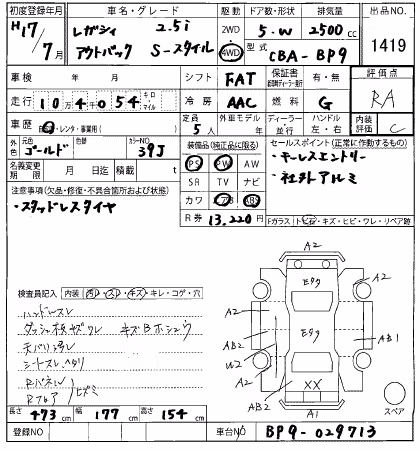 初度登録年月 車名・グレード 駆動 ドア数・形状 排気量 出品NO.
H17/7月 レガシィ 2.5i 2WD 5・W 2500cc 1419
アウトバック S-スタイル 4WD 型式 CBA-BP9
車検 年 月 シフト FAT 保証書 有・無 評価点
走行 104054 キロ マイル 冷房 AAC 燃料 G RA
車歴 自家・レンタ・事業用( ) 定員 5人 外車モデル 年 ディーラー 並行 ハンドル 左・右 内装評価 C
外色 元色 ゴールド 色替 カラーNO. 39J 装備品(純正品に限る) セールスポイント(正常に作動するもの)
名義変更期限 月 日迄 積載 t PS PW AW ・キーレスエントリー
注意事項(欠品・修復・不具合箇所および状態) SR TV ナビ ・社外アルミ
・スタッドレスタイヤ カワ エアB ABS
R券 ¥ 13,220円 Fガラス トビ石・キズ・ヒビ・ワレ・リペア跡
検査員記入 内装 汚れ・スレ・キズ・キレ・コゲ・穴
ハンドルスレ
天バリ汚レ
シートスレ ヘタリ
A2
Eタク
A2 A2
A2
AB2 Eタク AB1
W2
A2 A2
XX
AB2
A1
スペア
長さ 473cm 幅 177cm 高さ 154cm
登録NO 車台NO BP9-029713